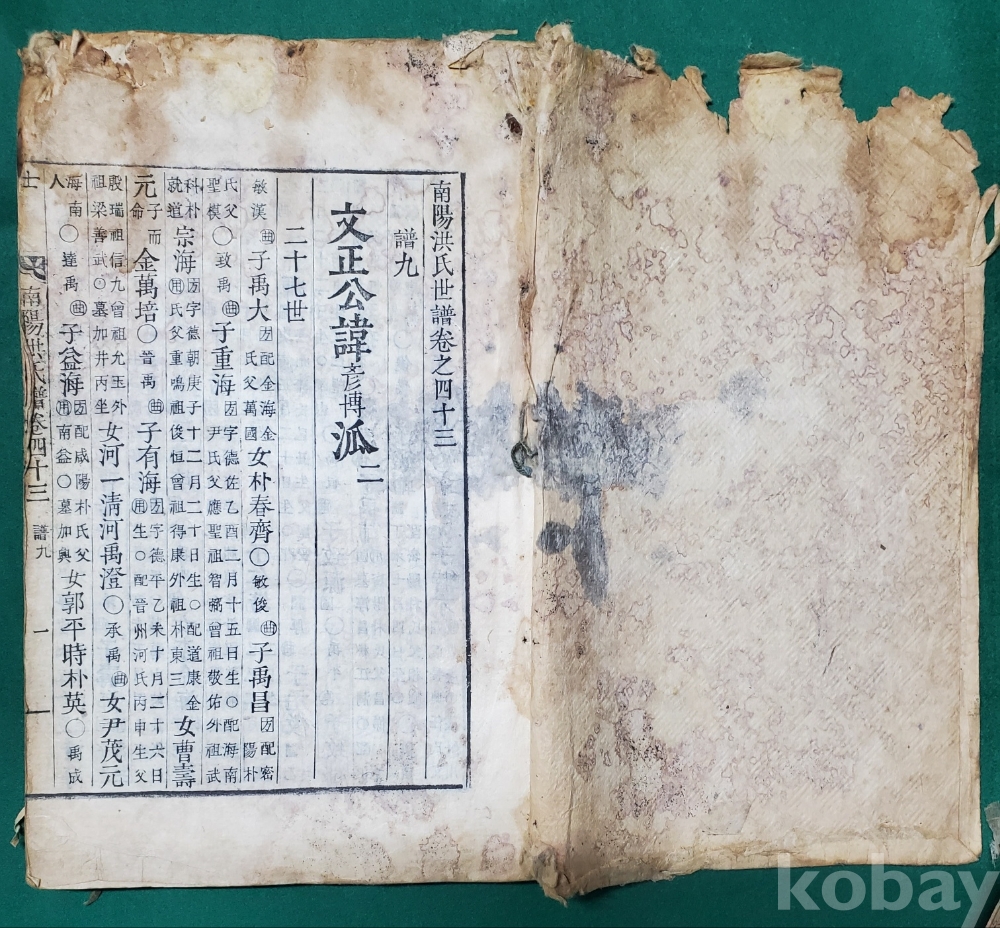 南陽洪氏世譜卷之四十三
譜九
文正公諱彦博派二
二十七世
敏漢 子禹大 配金海金氏父萬國 女朴春齊〇敏俊 子禹昌 配密陽朴
氏父聖模〇致禹 子重海 字德佐乙酉二月十五日生〇配海南尹氏父應聖祖智曾祖敬佑外祖武
科朴就道 宗海 字德朝庚子十二月二十日生〇配道康金氏父重鳴祖俊恒曾祖得康外祖朴東三 女曹壽
元子而命 金萬培〇普禹 子有海 字德平乙未十月二十六日生〇配晉州河氏丙申生父
殷瑞祖信九曾祖允玉外祖梁善武〇墓加井丙坐 女河一淸河禹澄〇承禹 女尹茂元
海南人〇達禹 子益海 配咸陽朴氏父南益〇墓加輿 女郭平時朴英〇禹成
南陽洪氏譜卷四十三 譜九 一
kobay